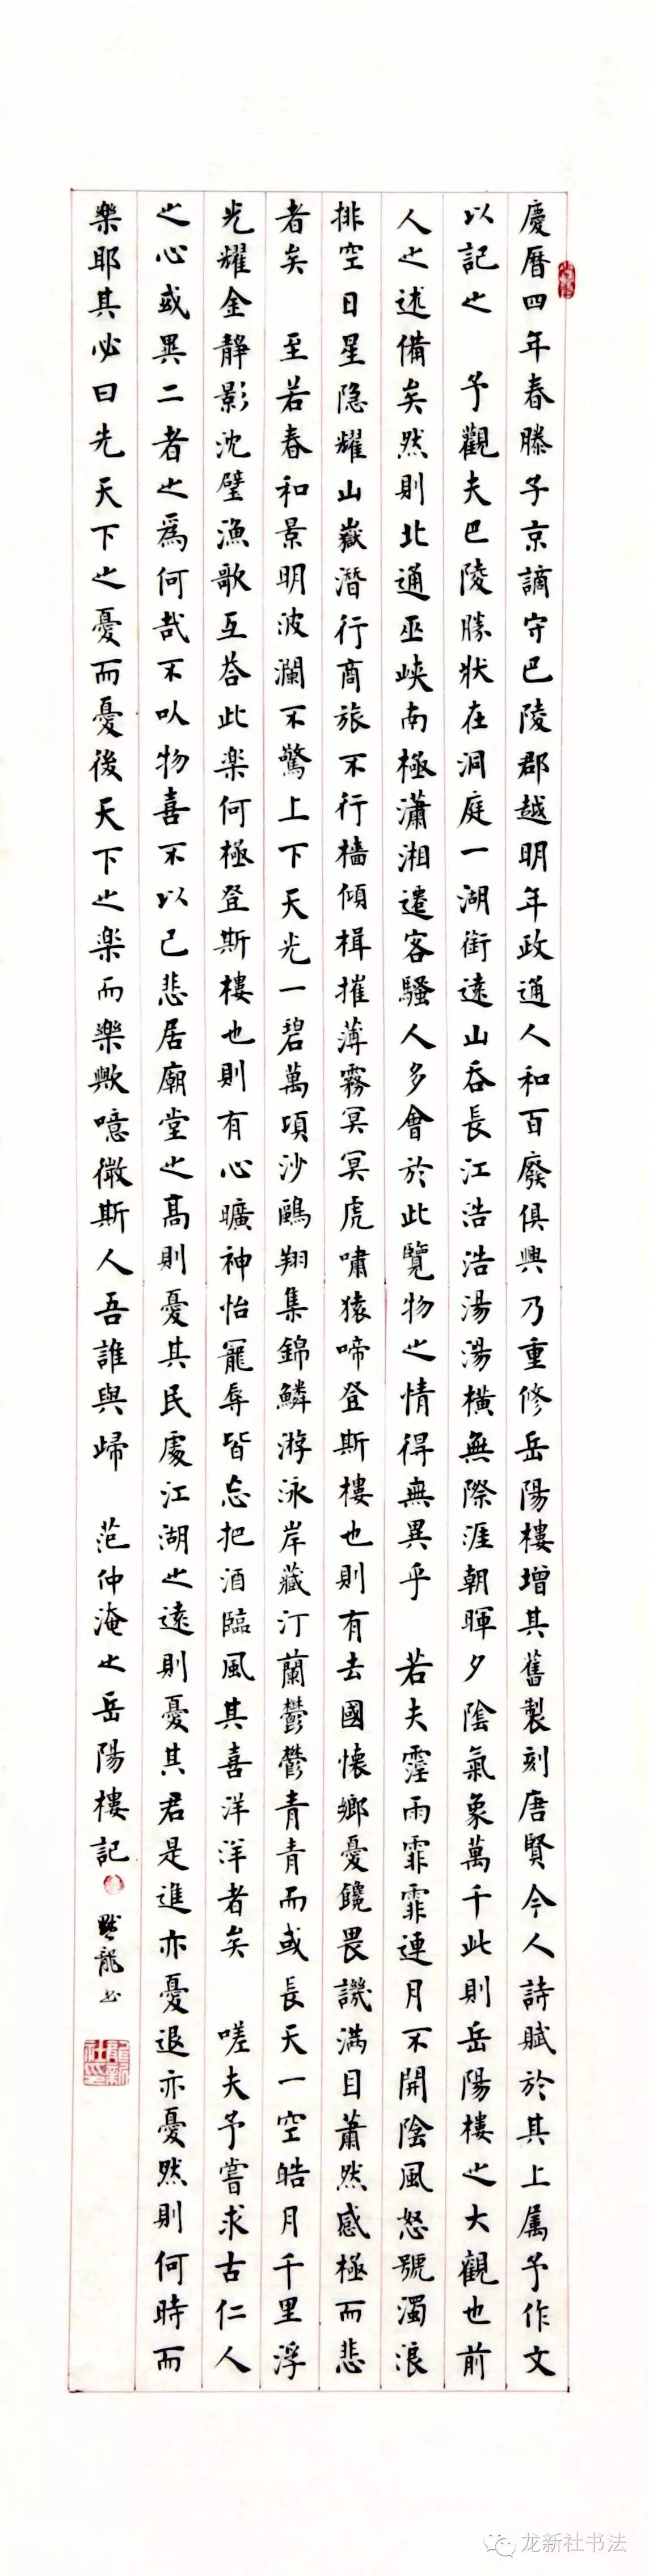 慶曆四年春滕子京謫守巴陵郡越明年政通人和百廢俱興乃重修岳陽樓增其舊製刻唐賢今人詩賦於其上属予作文
以記之 予觀夫巴陵勝狀在洞庭一湖銜遠山吞長江浩浩湯湯橫無際涯朝暉夕陰氣象萬千此則岳陽樓之大觀也前
人之述備矣然則北通巫峽南極瀟湘遷客騷人多會於此覽物之情得無異乎 若夫霪雨霏霏連月不開陰風怒號濁浪
排空日星隱耀山嶽潛行商旅不行檣傾楫摧薄霧冥冥虎嘯猿啼登斯樓也則有去國懷鄉憂饞畏譏滿目蕭然感極而悲
者矣 至若春和景明波瀾不驚上下天光一碧萬頃沙鷗翔集錦鱗游泳岸藏汀蘭鬱鬱青青而或長天一空皓月千里浮
光耀金靜影沈璧漁歌互荅此楽何極登斯樓也則有心曠神怡寵辱皆忘把酒臨風其喜洋洋者矣 嗟夫予嘗求古仁人
之心或異二者之爲何哉不以物喜不以己悲居廟堂之高則憂其民處江湖之遠則憂其君是進亦憂退亦憂然則何時而
樂耶其必曰先天下之憂而憂後天下之楽而樂歟噫微斯人吾誰與歸 范仲淹之岳陽樓記 黙龍书
龍新社印
龙新社书法